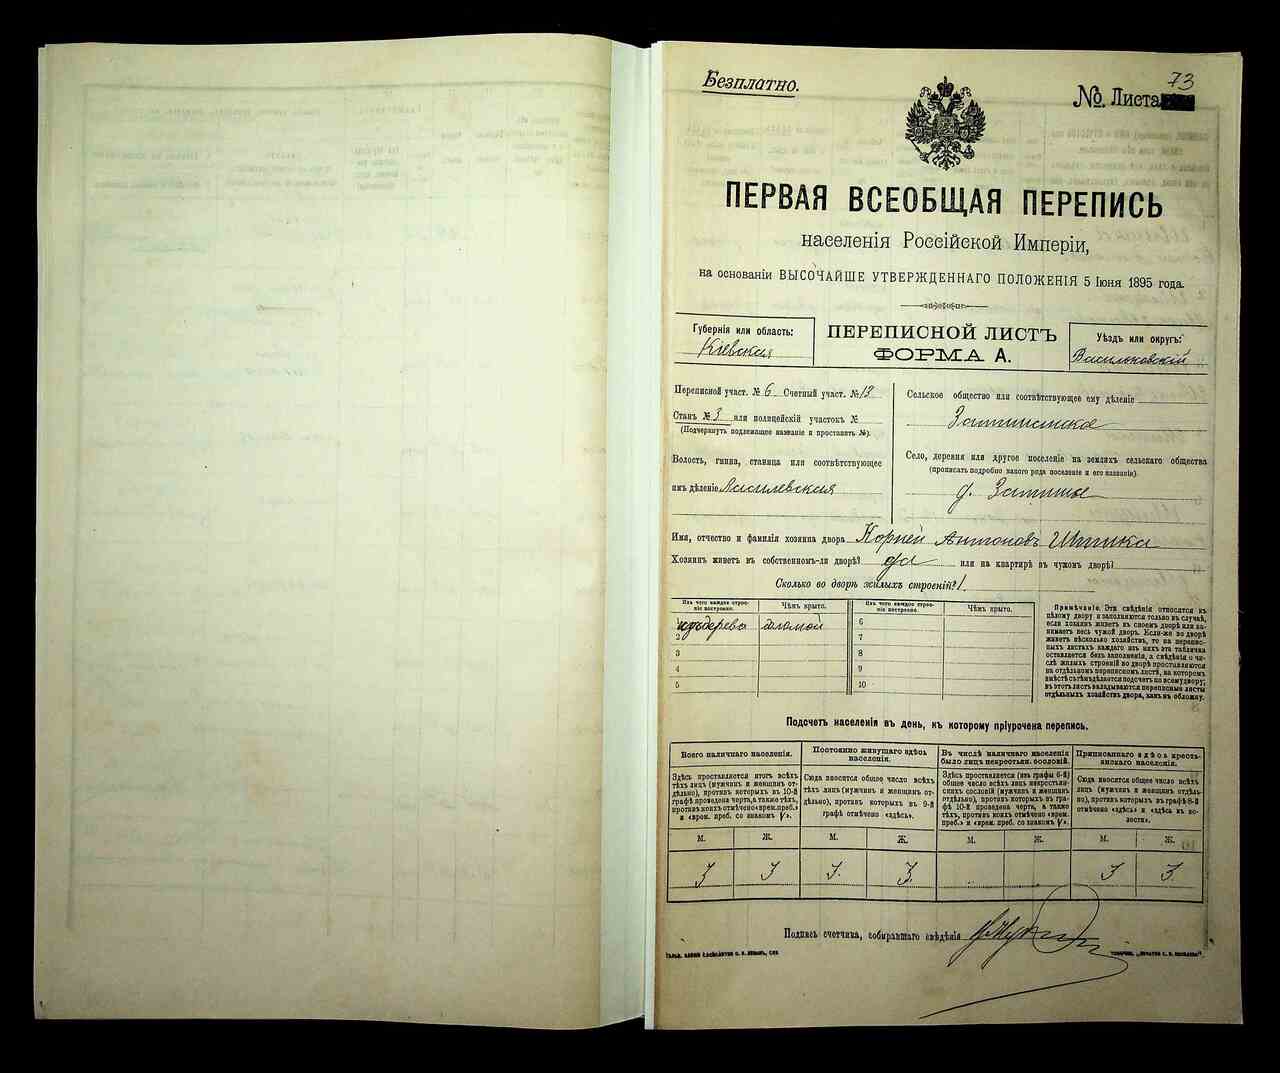 Безплатно.
73
№ Листа
ПЕРВАЯ ВСЕОБЩАЯ ПЕРЕПИСЬ
населенія Россійской Имперіи,
на основаніи ВЫСОЧАЙШЕ УТВЕРЖДЕННАГО ПОЛОЖЕНІЯ 5 Іюня 1895 года.
Губернія или область:
Кіевская
ПЕРЕПИСНОЙ ЛИСТЪ
ФОРМА А.
Уѣздъ или округъ:
Васильковскій
Переписной участ. № 6 Счетный участ. № 13
Станъ № 3 или полицейскій участокъ №
(Подчеркнуть подлежащее названіе и проставить №).
Волость, гмина, станица или соотвѣтствующее
имъ дѣленіе
Сельское общество или соотвѣтствующее ему дѣленіе
Село, деревня или другое поселеніе на земляхъ сельскаго общества
(прописать подробно какого рода поселеніе и его названіе).
д. Затишье
Имя, отчество и фамилія хозяина двора Корней Антоновъ
Хозяинъ живетъ въ собственномъ-ли дворѣ? да или на квартирѣ въ чужомъ дворѣ?
Сколько во дворѣ жилыхъ строеній? 1.
Изъ чего каждое строеніе построено.
Чѣмъ крыто.
Изъ чего каждое строеніе построено.
Чѣмъ крыто.
изъ дерева соломой
2
3
4
5
6
7
8
9
10
Примѣчаніе. Эти свѣдѣнія относятся къ
цѣлому двору и заполняются только въ случаѣ,
если хозяинъ живетъ въ своемъ дворѣ или занимаетъ
весь чужой дворъ. Если-же во дворѣ
живетъ нѣсколько хозяйствъ, то на переписныхъ
листахъ каждаго изъ нихъ эта табличка
оставляется безъ заполненія, а свѣдѣнія о числѣ
жилыхъ строеній во дворѣ проставляются
на отдѣльномъ переписномъ листѣ, на которомъ
вмѣстѣ съ тѣмъ дѣлается подсчетъ по всему двору;
въ этотъ листъ вкладываются переписные листы
отдѣльныхъ хозяйствъ двора, какъ въ обложку.
Подсчетъ населенія въ день, къ которому пріурочена перепись.
Всего наличнаго населенія.
Здѣсь проставляется итогъ всѣхъ
тѣхъ лицъ (мужчинъ и женщинъ отдѣльно),
противъ которыхъ въ 10-й
графѣ проведена черта, а также тѣхъ,
противъ коихъ отмѣчено «врем. преб.»
и «врем. преб. со знакомъ V».
М. Ж.
3 3
Постоянно живущаго здѣсь
населенія.
Сюда вносится общее число всѣхъ
тѣхъ лицъ (мужчинъ и женщинъ отдѣльно),
противъ которыхъ въ 9-й
графѣ отмѣчено «здѣсь».
М. Ж.
3. 3.
Въ числѣ наличнаго населенія
было лицъ некрестьян. сословій.
Здѣсь проставляется (изъ графы 6-й)
общее число всѣхъ лицъ некрестьянскихъ
сословій (мужчинъ и женщинъ
отдѣльно), противъ которыхъ въ графѣ
10-й проведена черта, а также
тѣхъ, противъ коихъ отмѣчено «врем.
преб.» и «врем. преб. со знакомъ V».
М. Ж.
Приписаннаго здѣсь крестьянскаго
населенія.
Сюда вносится общее число всѣхъ
лицъ (мужчинъ и женщинъ отдѣльно),
противъ которыхъ въ графѣ 8-й
отмѣчено «здѣсь» и «здѣсь въ волости».
М. Ж.
3 3.
Подпись счетчика, собиравшаго свѣдѣнія